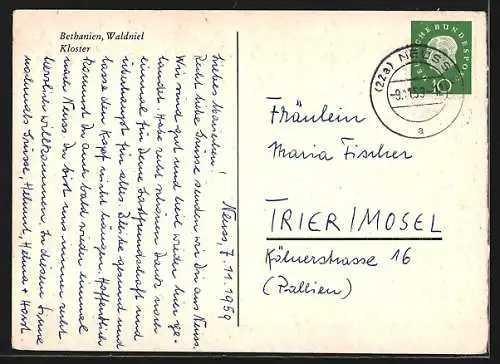 Bethanien, Waldniel
Kloster
Neuss, 7.11.1959
Liebes Mariechen!
Recht liebe Grüsse senden wir Dir aus Neuss.
Wir sind gut und heil wieder hier ge-
landet. Habe recht schönen Dank noch
einmal für Deine Gastfreundschaft und
überhaupt für alles. Bleibe gesund und
lasse den Kopf nicht hängen. Hoffentlich
kommst Du auch bald wieder einmal
nach Neuss. Du bist uns immer recht
herzlich willkommen. In diesem Sinne
nochmals Grüsse, Helmut, Helma + Horst.
DEUTSCHE BUNDESPOST
10
(22a) NEUSS
a
Fräulein
Maria Fischer
TRIER/MOSEL
Kölnerstrasse 16
(Pallien)